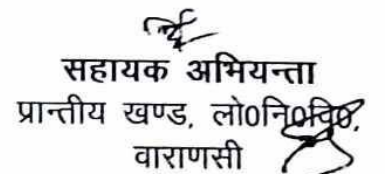 सहायक अभियन्ता
प्रान्तीय खण्ड, लो0नि0वि0,
वाराणसी